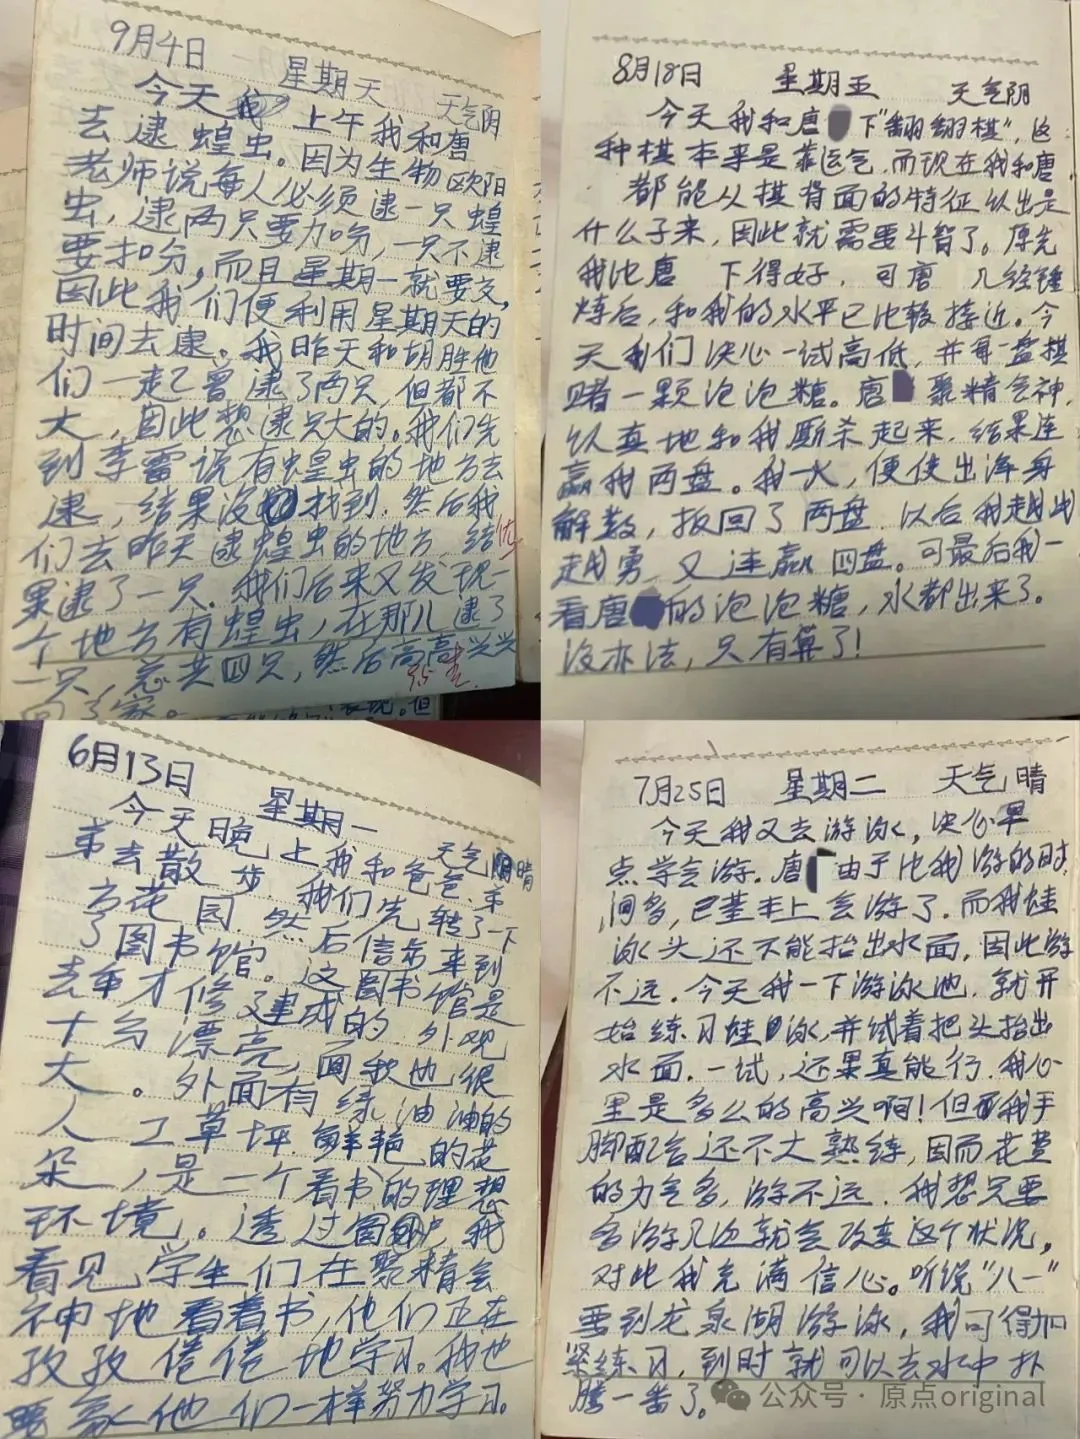 9月4日 星期天 天气阴
今天 上午我和唐
去逮蝗虫。因为生物欧阳
老师说每人必须逮一只蝗
虫,逮两只要加分,一只不逮
要扣分,而且星期一就要交,
因此我们便利用星期天的
时间去逮。我昨天和胡胜他
们一起曾逮了两只,但都不
大,因此想逮只大的。我们先
到李雷说有蝗虫的地方去
逮,结果没找到.然后我
们去昨天逮蝗虫的地方,结
果逮了一只.我们后来又发现一
个地方有蝗虫,在那儿逮了
一只,总共四只,然后高高兴兴
回了家。
优
8月18日 星期五 天气阴
今天我和唐 下“翻翻棋”,这
种棋本来是靠运气.而现在我和唐
都能从棋背面的特征认出是
什么子来,因此就需要斗智了。原先
我比唐 下得好,可唐 几经锤
炼后,和我的水平已比较接近。今
天我们决心一试高低,并每一盘棋
赌一颗泡泡糖。唐 聚精会神,
认真地和我厮杀起来.结果连
赢我两盘。我一火,便使出浑身
解数,扳回了两盘.以后我越战
越勇.又连赢四盘。可最后我一
看唐 的泡泡糖,水都出来了。
没办法,只有算了!
6月13日 星期一 天气阴晴
今天晚上我和爸爸.弟
弟去散步.我们先转了一下
花园.然后信步来到
了图书馆。这图书馆是
去年才修建成的.外观
十分漂亮,面积也很
大。外面有绿油油的
人工草坪.鲜艳的花
朵,是一个看书的理想
环境。透过窗户我
看见,学生们在聚精会
神地看着书,他们正在
孜孜倦倦地学习。我也
要象他们一样努力学习。
7月25日 星期二 天气晴
今天我又去游泳,决心早
点学会游.唐 由于比我游的时
间多,已基本上会游了.而我蛙
泳头还不能抬出水面,因此游
不远.今天我一下游泳池.就开
始练习蛙泳,并试着把头抬出
水面.一试,还果真能行.我心
里是多么的高兴啊!但我手
脚配合还不大熟练,因而花费
的力气多,游不远.我想只要
多游几次就会改变这个状况,
对此我充满信心。听说“八一”
要到龙泉湖游泳,我可得加
紧练习,到时就可以去水中扑
腾一番了。
公众号·原点original